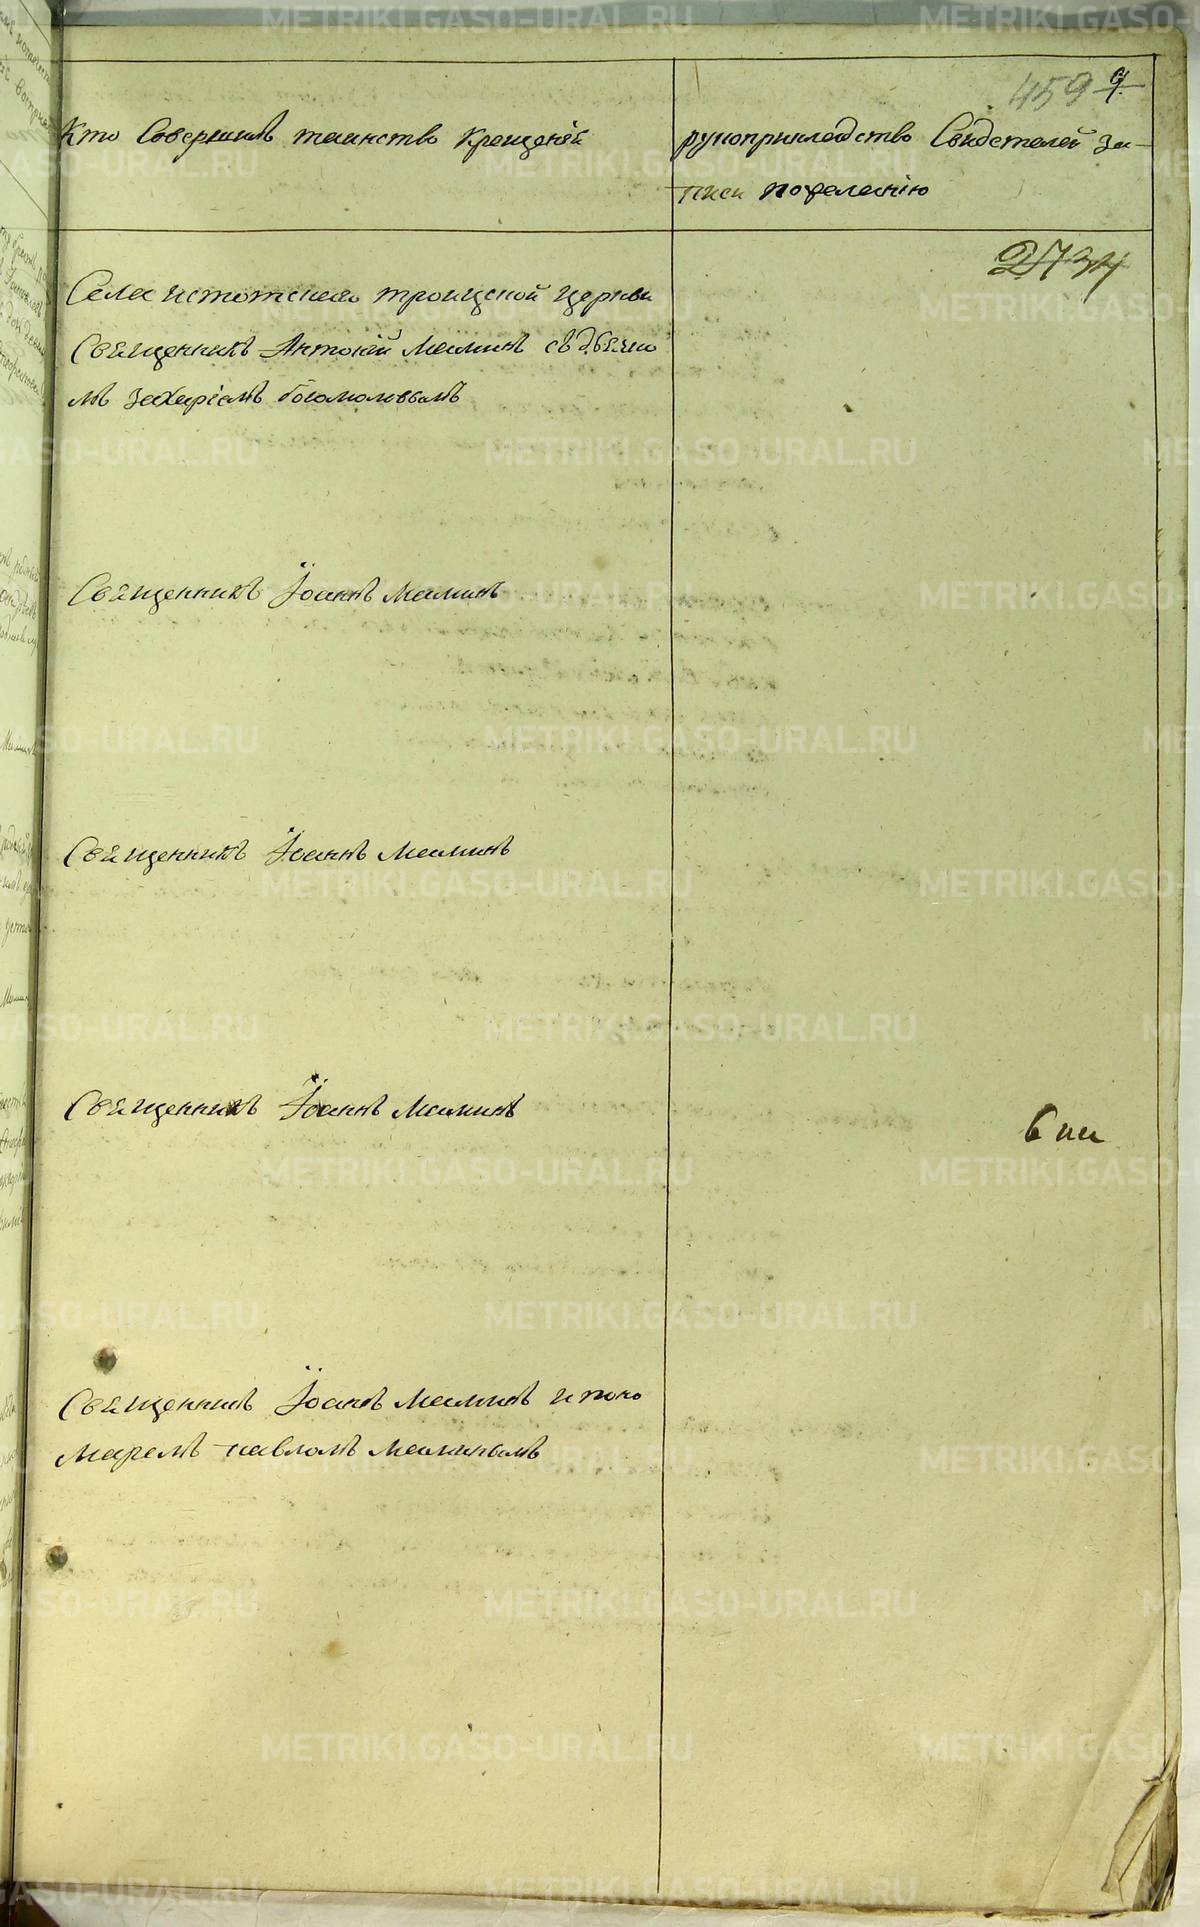 459 9
Кто Совершилъ таинство крещенїй
рукоприкладство Свидетелей за-
писи пожеланію
Села истотскаго троицкой церкви
Священникъ Антоній Маминъ съ дьячко
мъ Захаріемъ богомоловымъ
Священникъ Їоаннъ Маминъ
Священникъ Їоаннъ Маминъ
Священникъ Їоаннъ Маминъ
Священникъ Їоаннъ Маминъ и поно
маремъ павломъ Маминымъ
METRIKI.GASO-URAL.RU